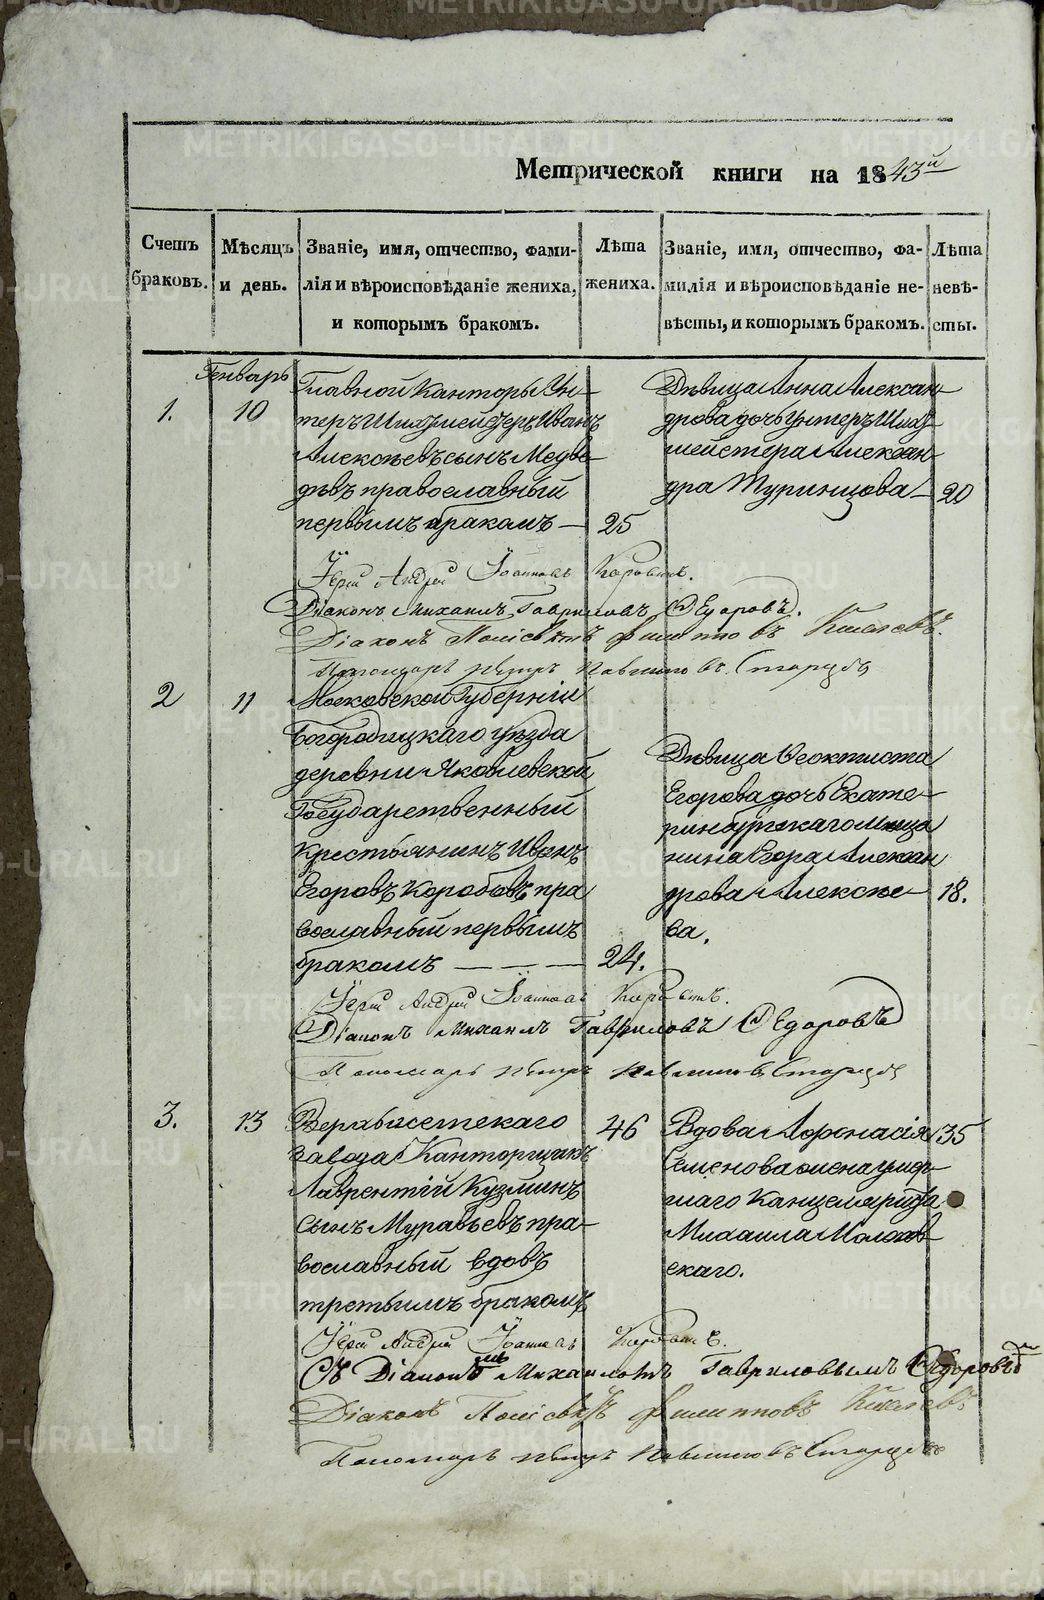 Метрической книги на 1843й
Счетъ браковъ.
Мѣсяцъ и день.
Званіе, имя, отчество, фами-
лія и вѣроисповѣданіе жениха,
и которымъ бракомъ.
Лѣта жениха.
Званіе, имя, отчество, фа-
милія и вѣроисповѣданіе не-
вѣсты, и которымъ бракомъ.
Лѣта невѣ-
сты.
Генварь
1.
10
Главной Канторы Ун-
теръ Шихтмейстеръ Иванъ
Алексѣевъ сынъ Медвѣ-
дѣвъ православный
первымъ бракомъ —
25
Дѣвица Анна Алексан-
дрова дочь Унтеръ Шихт-
мейстера Алексан-
дра Туринцова —
20
Іерей Андрей Іоанновъ
Діаконъ Михаилъ Гавриловъ Ѳедоровъ.
Діаконъ Филипповъ
Пономарь Петръ
2
11
Московской Губерніи
Богородицкаго уѣзда
деревни Яковлевской
Государственный
крестьянинъ Иванъ
Егоровъ Коробовъ пра
вославный первымъ
бракомъ — — —
24.
Дѣвица Ѳеоктиста
Егорова дочь Екате-
ринбургскаго мѣща
нина Егора Алексан
дрова Алексѣе-
ва.
18.
Іерей Андрей Іоанновъ
Діаконъ Михаилъ Гавриловъ Ѳедоровъ
Пономарь Петръ
3.
13
Верхъисетскаго
завода Канторщикъ
Лаврентій Кузминъ
сынъ Муравьевъ пра-
вославный вдовъ
третьимъ бракомъ
46
Вдова Афонасія
Семенова жена умер-
шаго Канцеляриста
Михаила Малахов
скаго.
35
Іерей Андрей Іоанновъ
Съ Діакономъ Михаиломъ Гавриловымъ Ѳедоровымъ
Діаконъ Филипповъ
Пономарь Петръ
METRIKI.GASO-URAL.RU